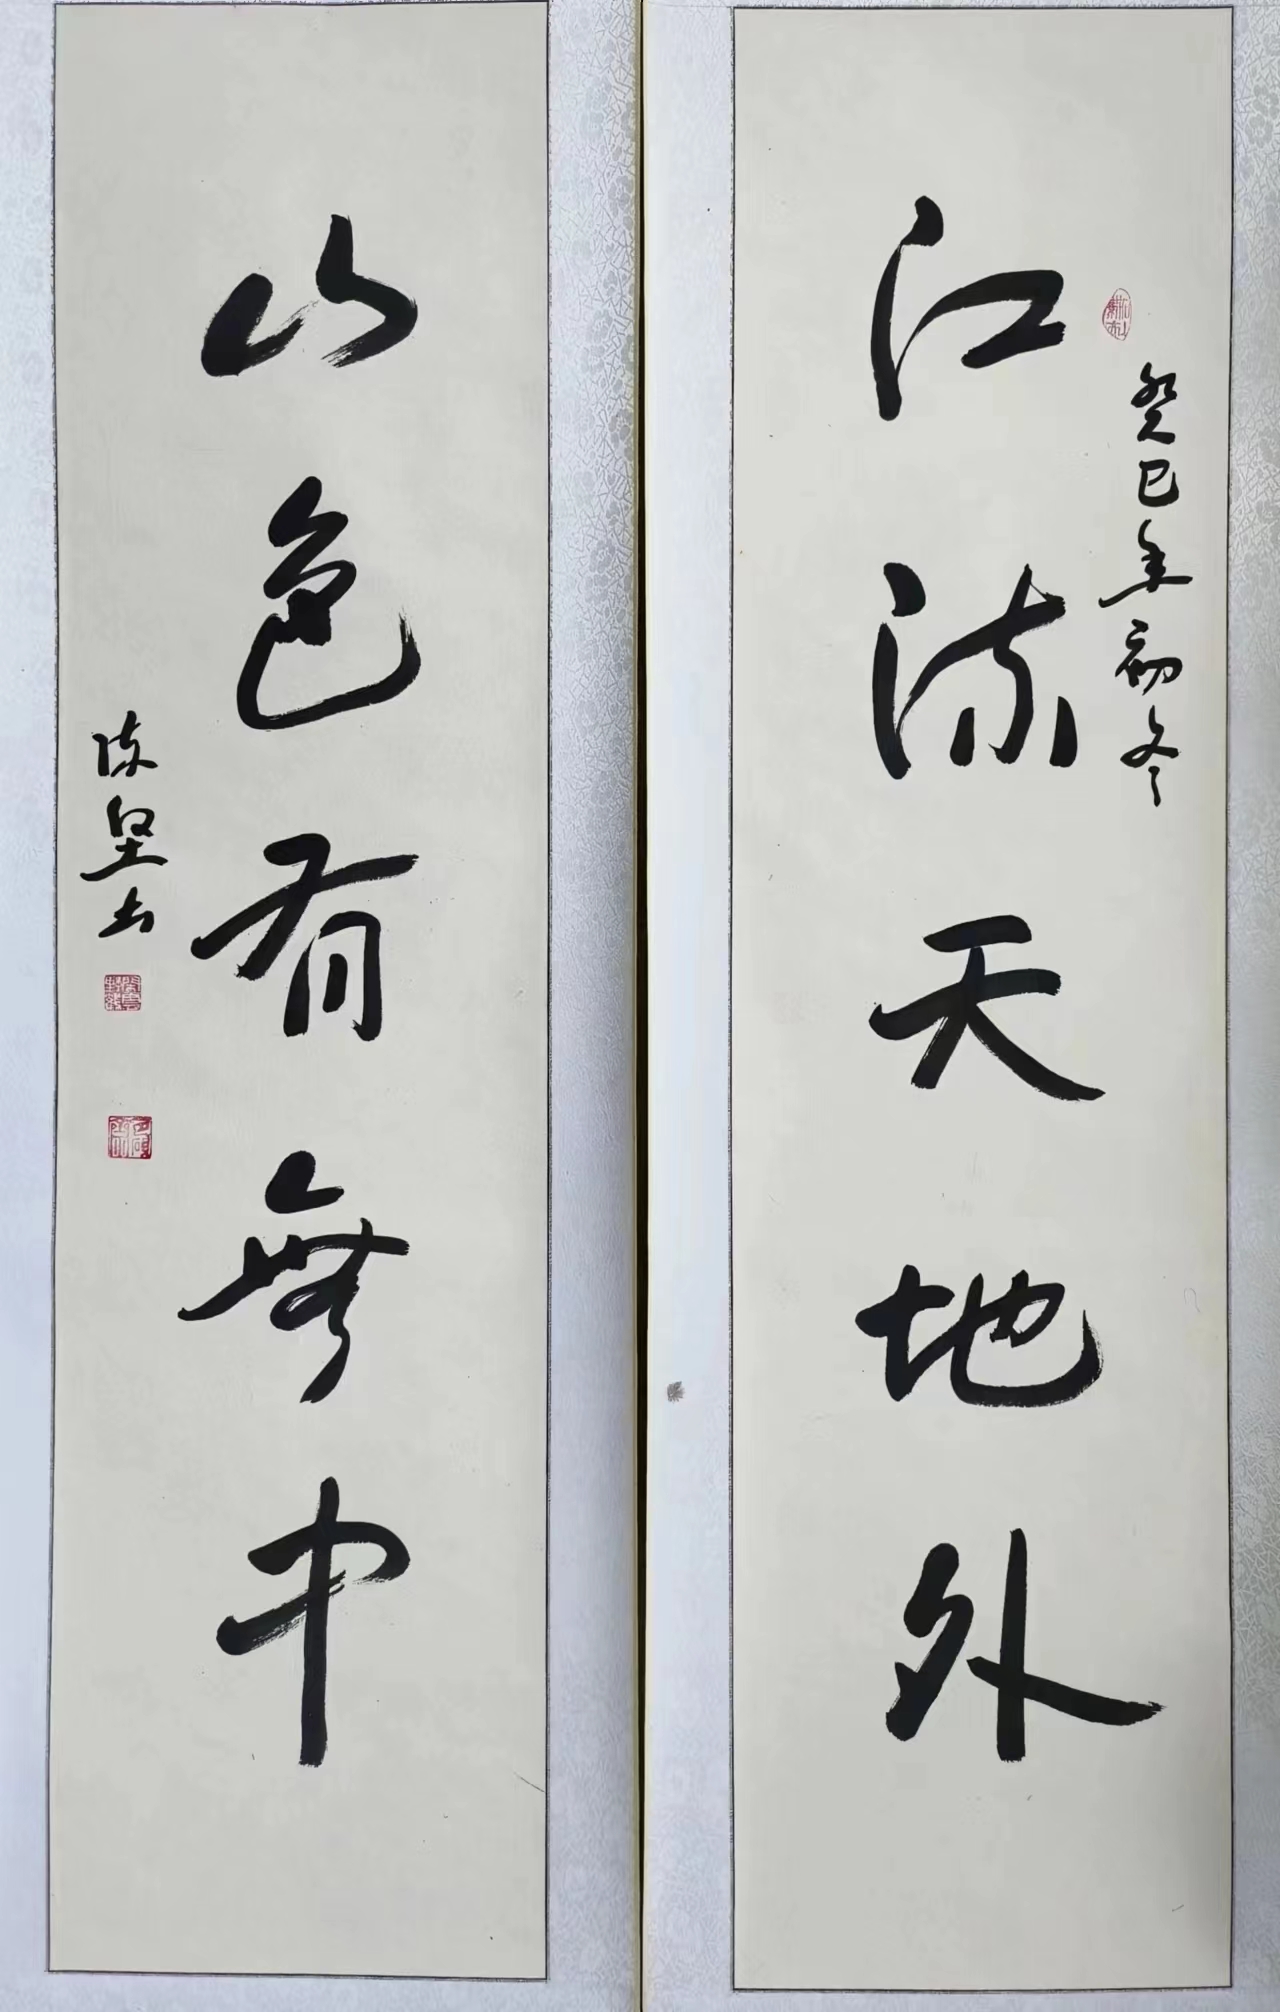 癸巳年初冬
江流天地外
山色有無中
陈坚书